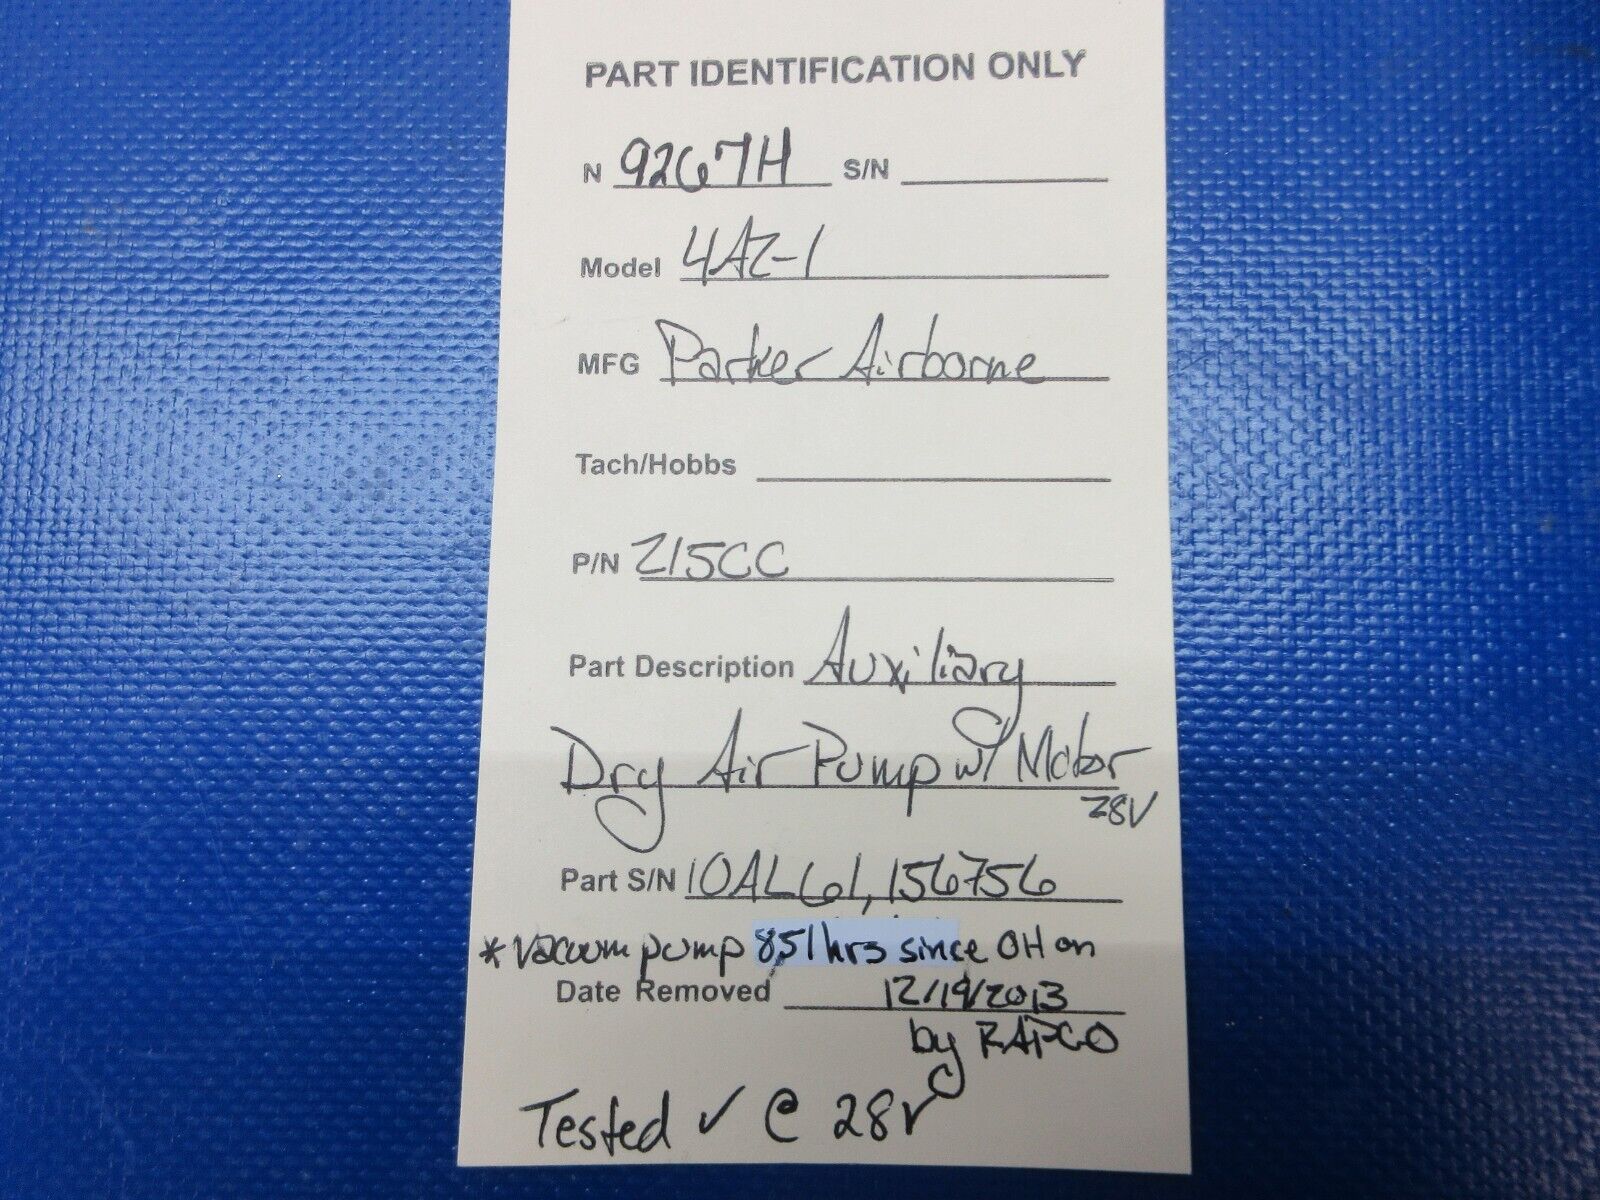 PART IDENTIFICATION ONLY
N 9267H S/N
Model 4AZ-1
MFG Parker Airborne
Tach/Hobbs
P/N 215CC
Part Description Auxiliary
Dry Air Pump w/ Motor
28V
Part S/N 10AL61, 156756
*Vacuum pump 851 hrs since OH on
Date Removed 12/19/2013
by RAPCO
Tested ✓ @ 28V